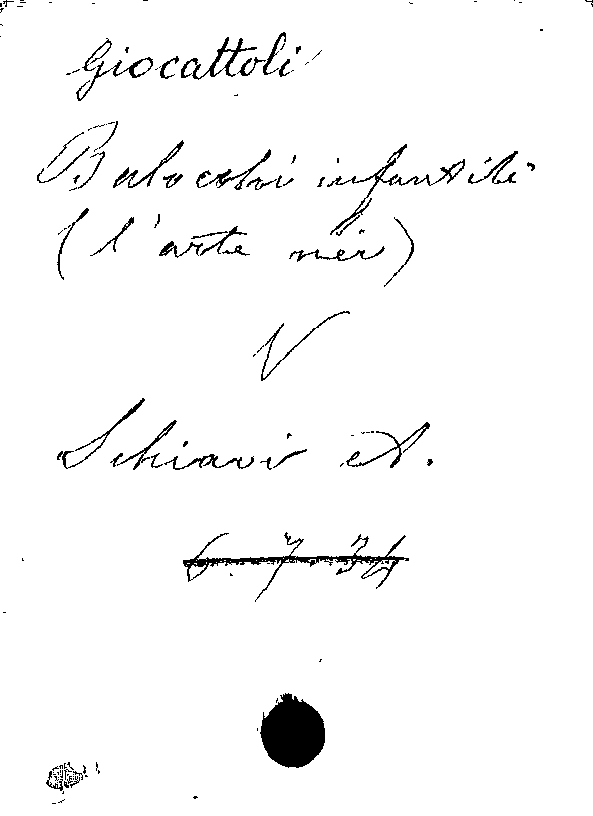 Giocattoli
Balocchi infantili
(l'arte nei)
V
Schiavi A.
6.7.34